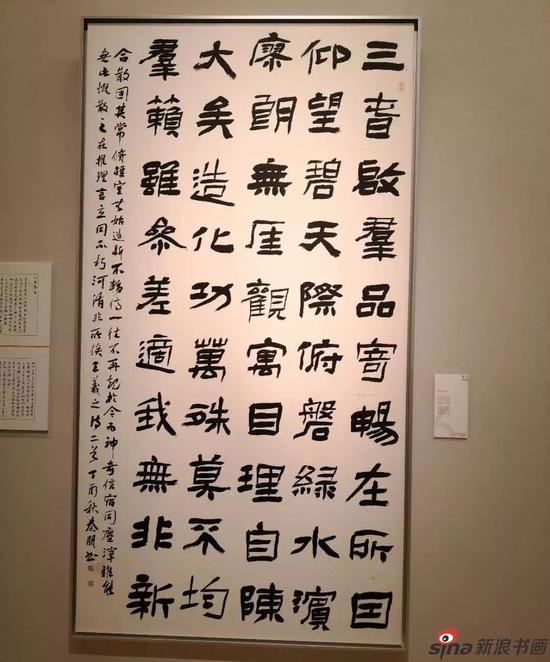 三旾啟羣品寄暢在所因
仰望碧天際俯磐綠水濱
寥朗無厓觀寓目理自陳
大矣造化功萬殊莫不均
羣籟雖參差適我無非新
合散固其常脩短定无始造新不暫停一往不再起於今為神奇信宿同塵滓誰能
無此慨散之在推理言立同不朽河清非所俟王羲之詩二首丁酉秋
sina新浪书画